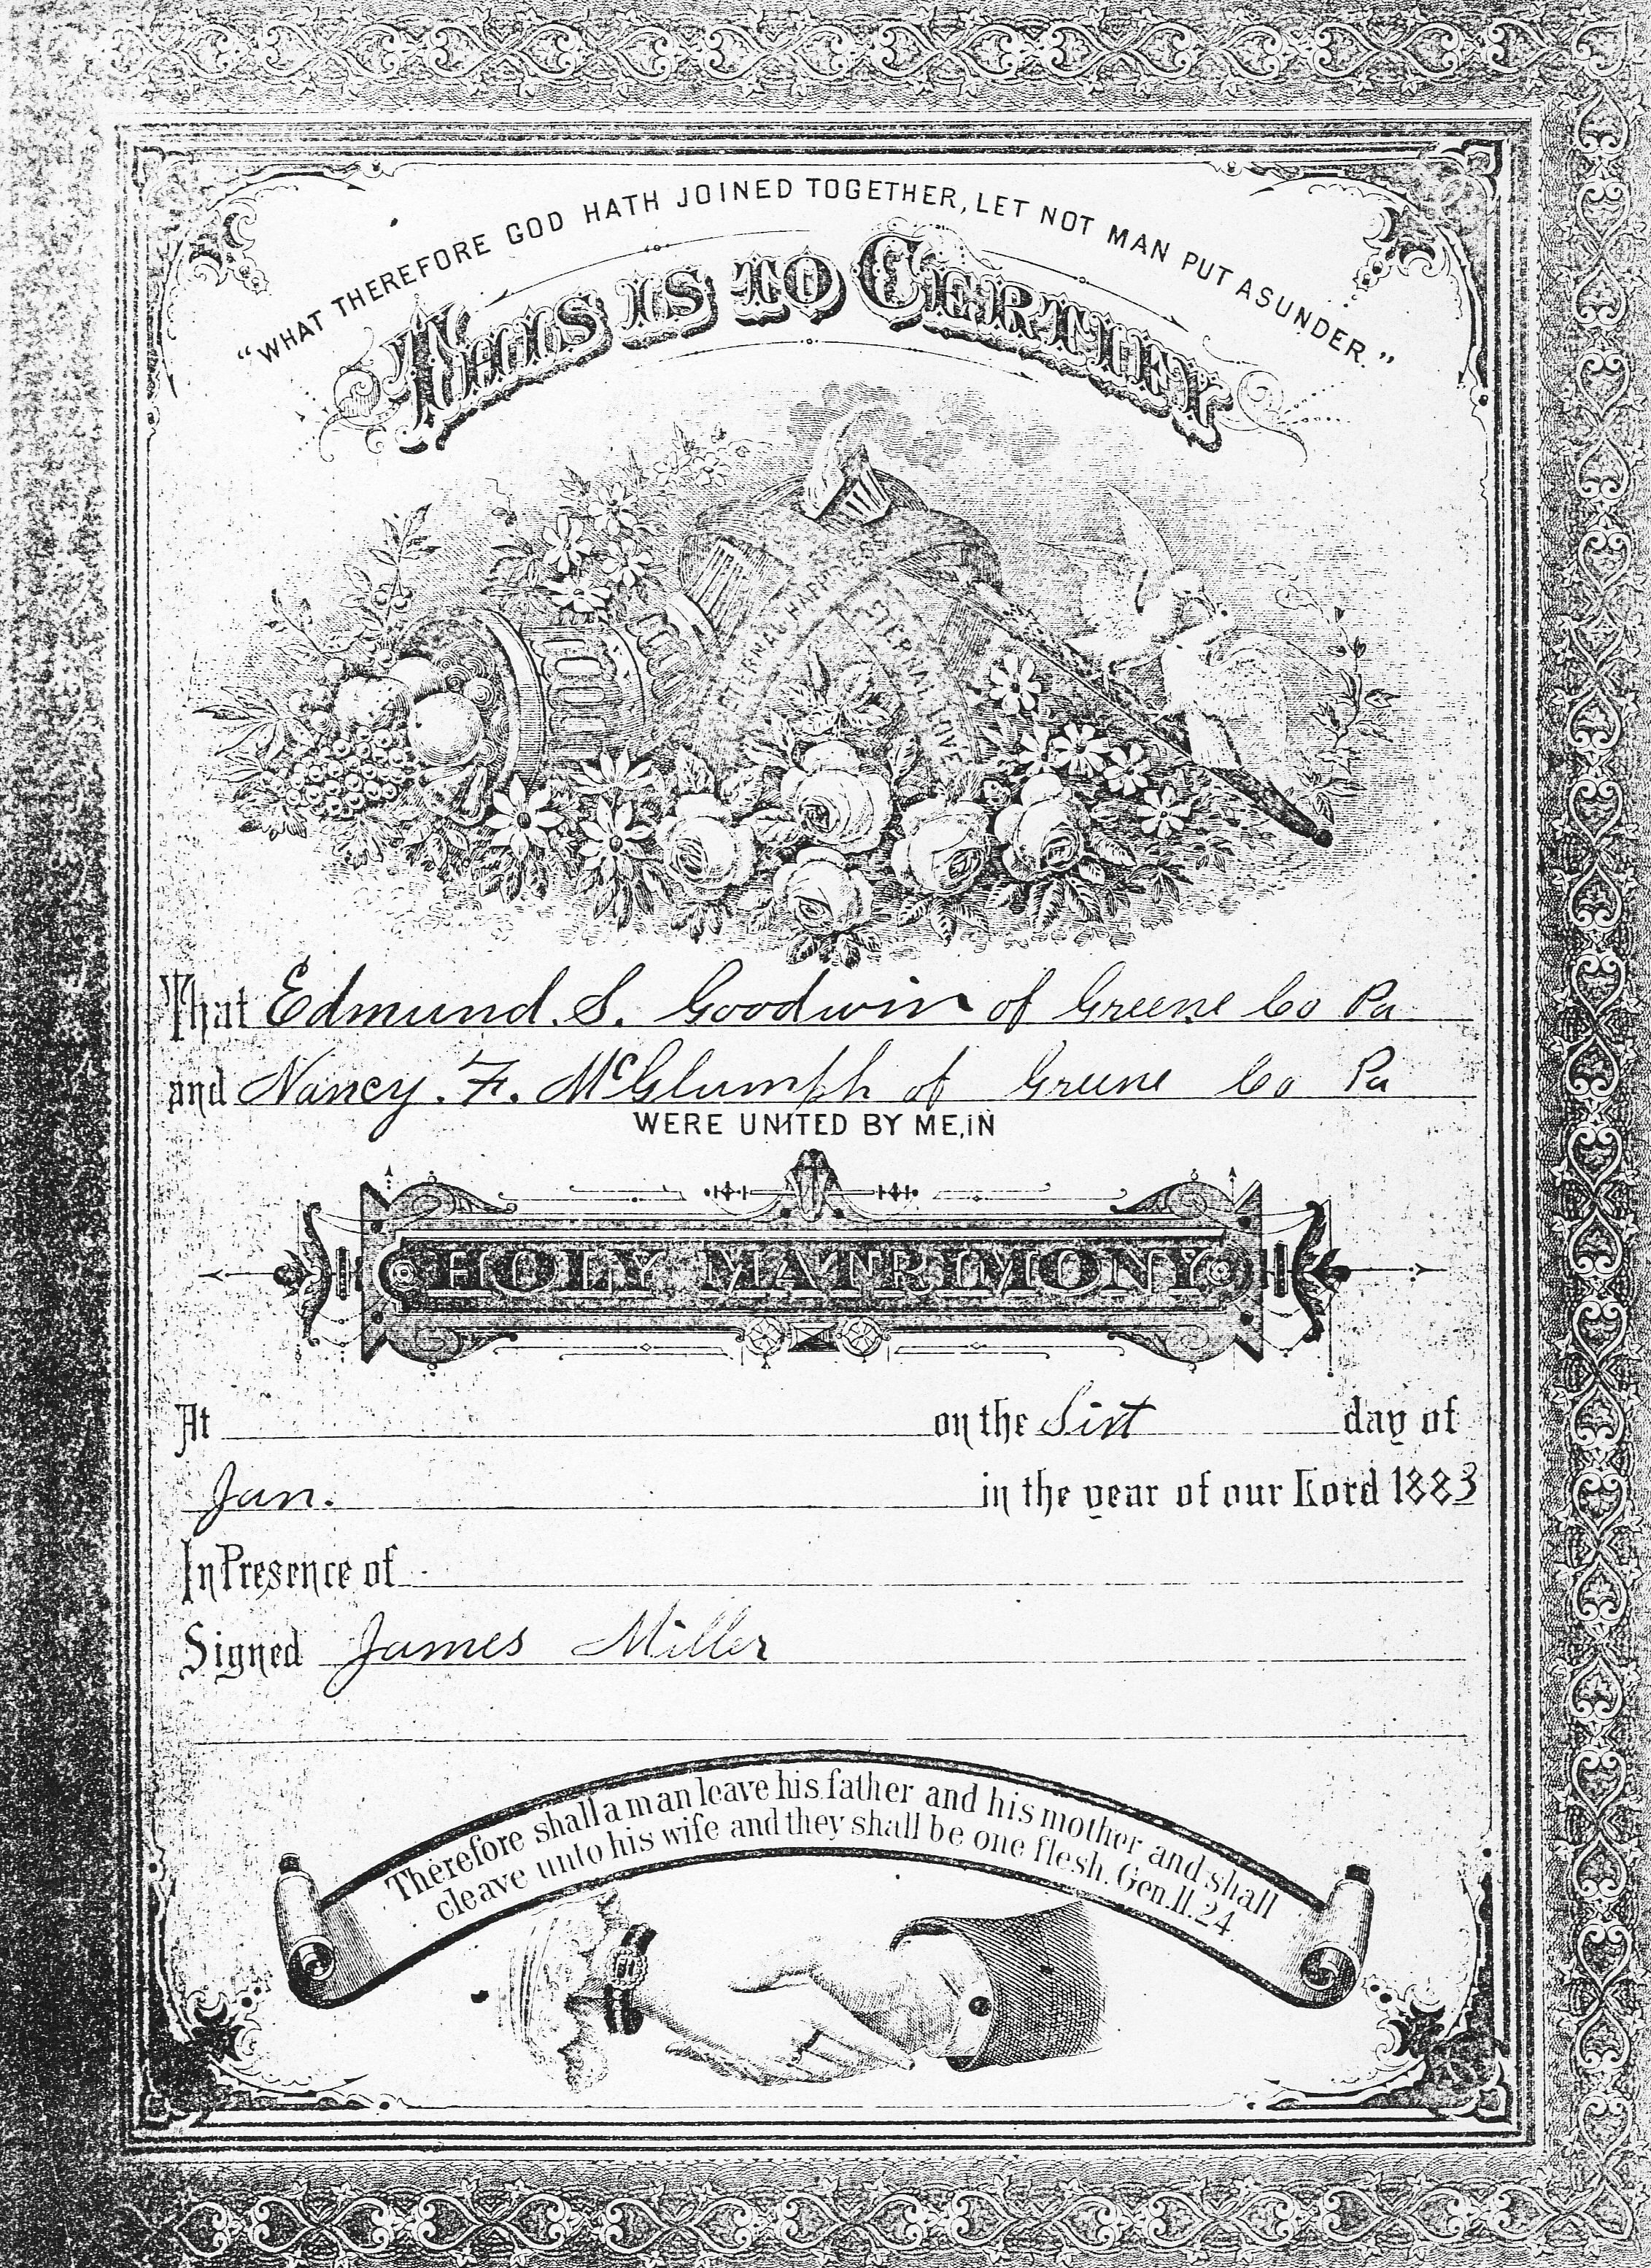 "WHAT THEREFORE GOD HATH JOINED TOGETHER, LET NOT MAN PUT ASUNDER."
THIS IS TO CERTIFY
ETERNAL HAPPINESS
ETERNAL LOVE
That Edmund. S. Goodwin of Greene Co Pa
and Nancy. F. McGlumph of Greene Co Pa
WERE UNITED BY ME, IN
HOLY MATRIMONY
At on the Sixt day of
Jan. in the year of our Lord 1883
In Presence of
Signed James Miller
Therefore shall a man leave his father and his mother and shall
cleave unto his wife and they shall be one flesh. Gen. II. 24.